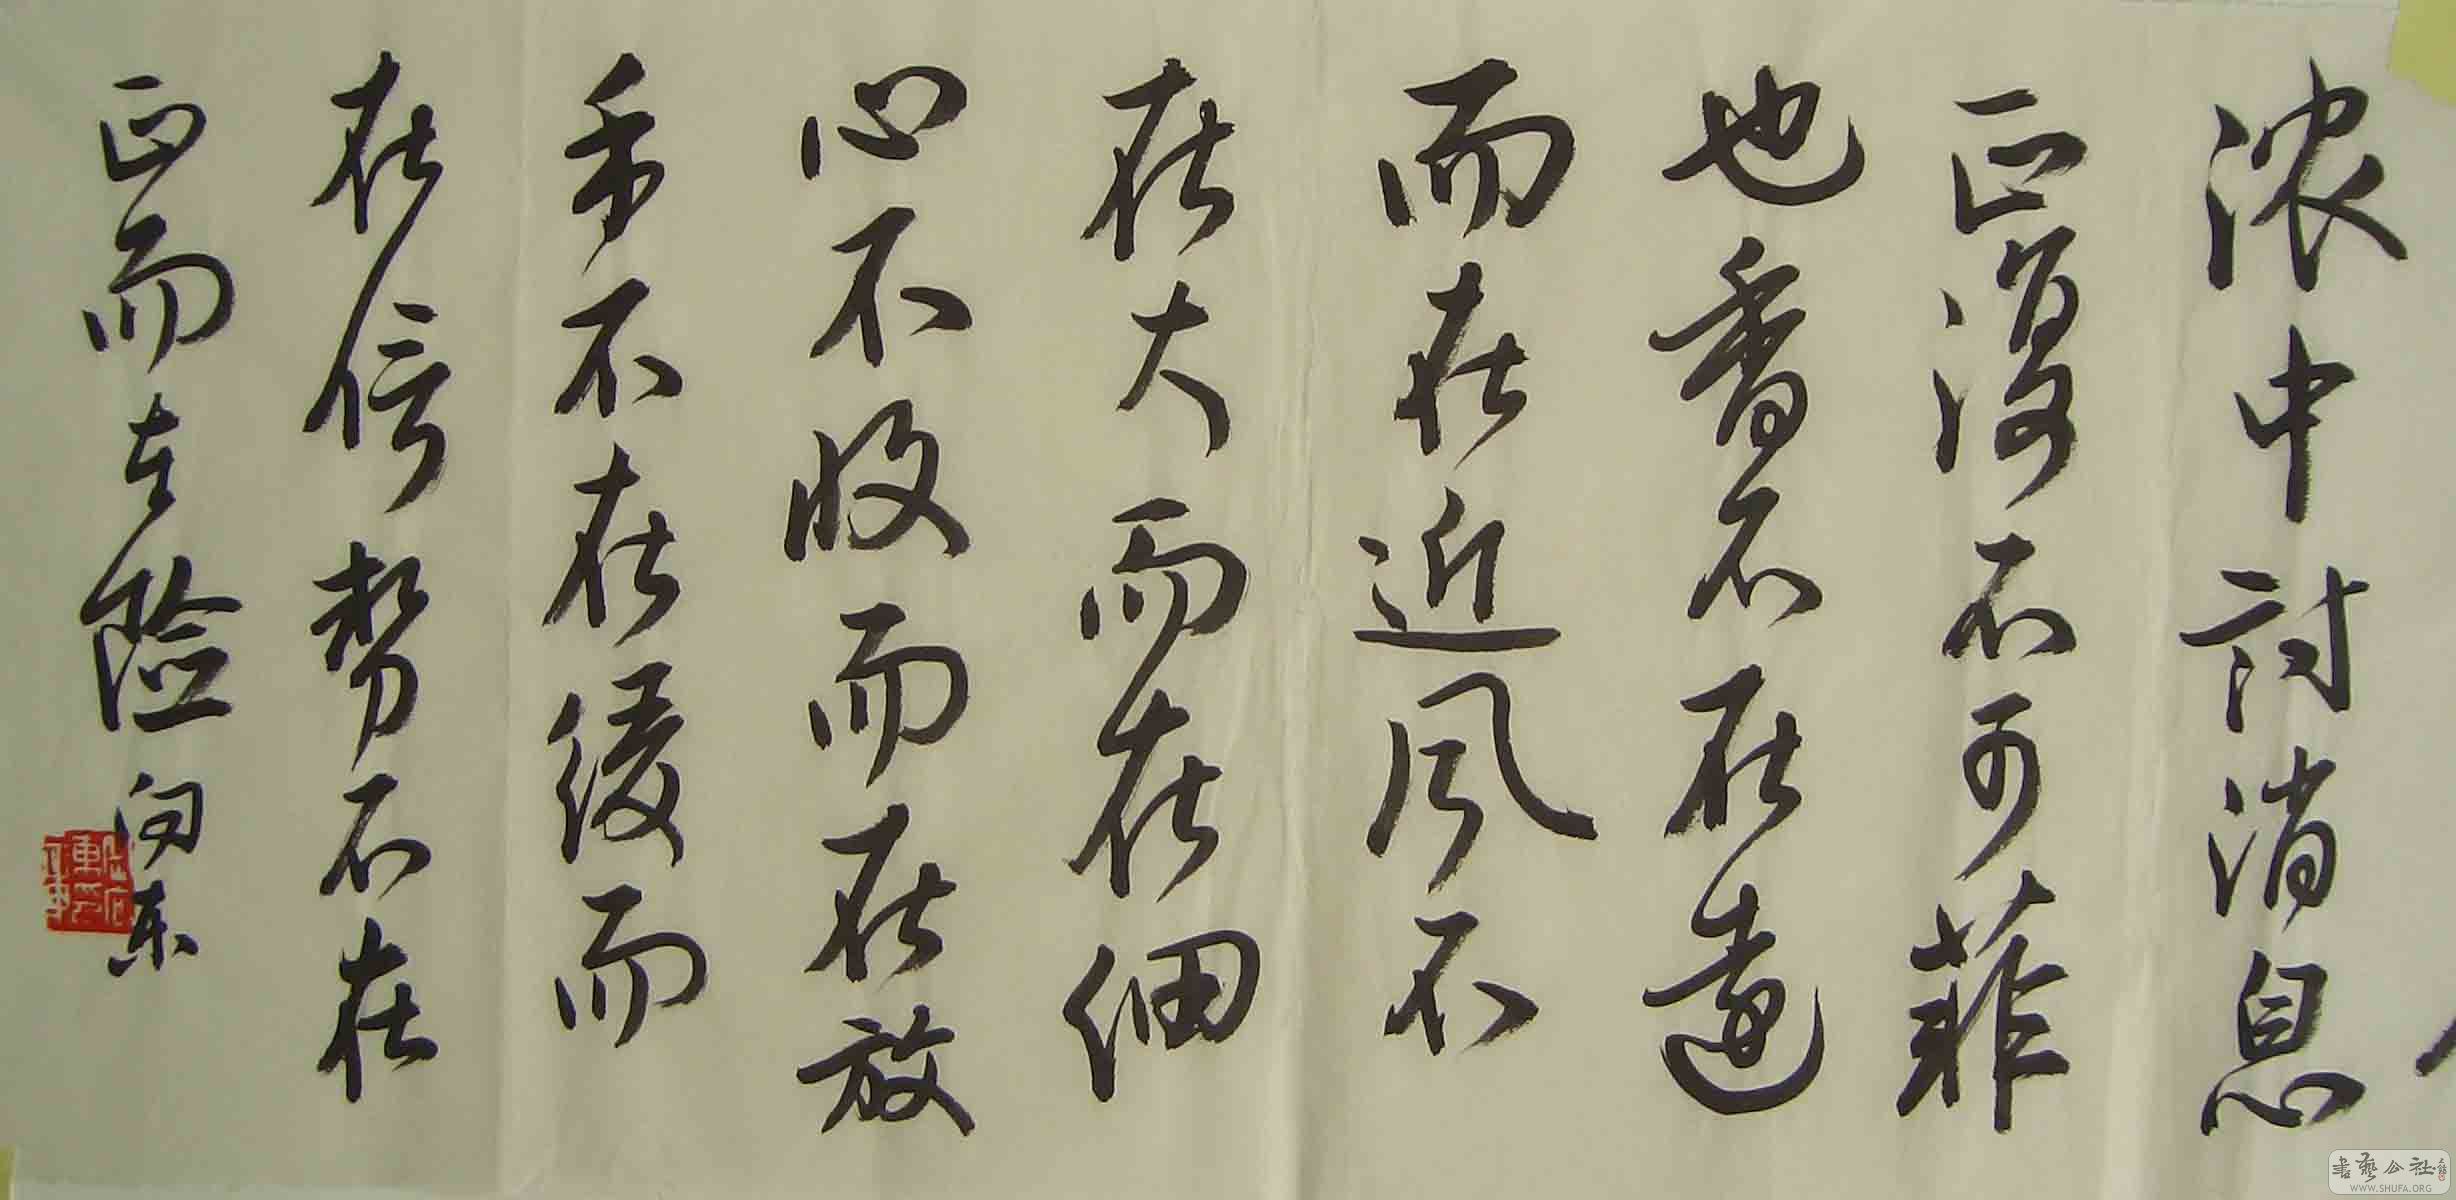 浓中討消息
正没不可菲
也看不在遠
而在近風不
在大而在细
心不收而在放
手不在缓而
在信势不在
正而在险 向東
書藝公社
WWW.SHUFA.ORG